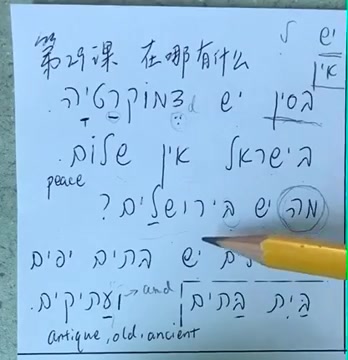 יש ל
אין
第29课 在哪有什么
בסין יש דמוקרטיה.
d
בישראל אין שלום.
peace
מה יש בירושלים?
יש בתים יפים
בַּיִת בָּתים
ועַתיקים.
and
antique, old, ancient